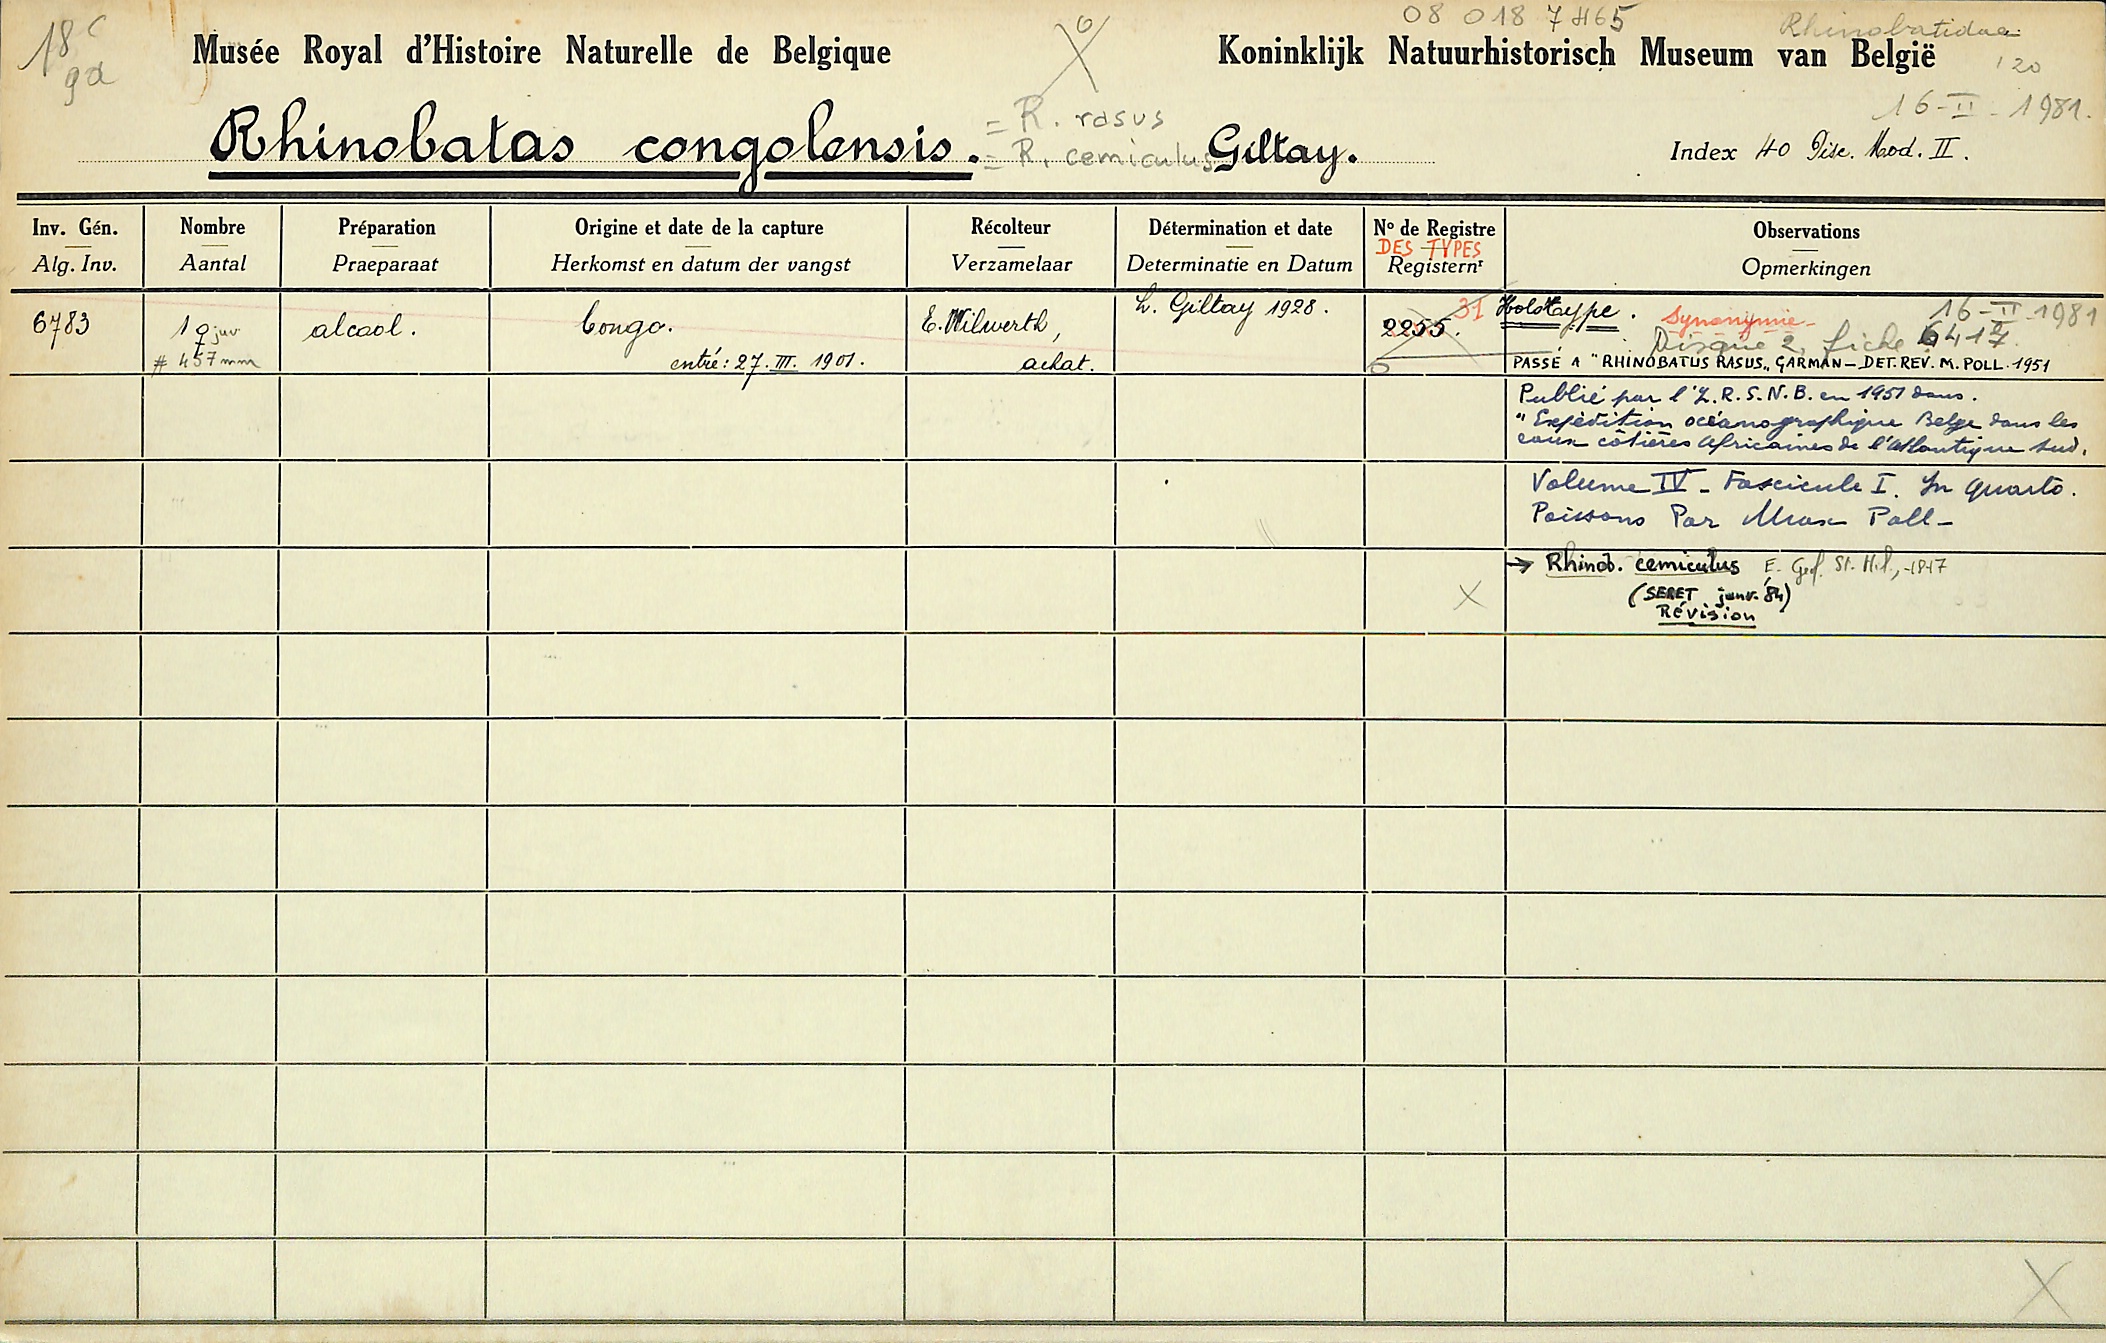 18c
gd
08 018 7465
Rhinobatidae
120
Musée Royal d'Histoire Naturelle de Belgique
Koninklijk Natuurhistorisch Museum van België
16-II-1981.
Rhinobatas congolensis.
= R. rasus
= R. cemiculus
Giltay.
Index 40 Disc. Mod. II.
Inv. Gén.
Alg. Inv.
Nombre
Aantal
Préparation
Praeparaat
Origine et date de la capture
Herkomst en datum der vangst
Récolteur
Verzamelaar
Détermination et date
Determinatie en Datum
No de Registre
DES TYPES
Registernr
Observations
Opmerkingen
6783
1 ♀ juv
# 457 mm
alcool.
Congo.
entré: 27. III. 1901.
E. Wilwerth,
achat.
L. Giltay 1928.
31
2255.
Holotype.
Synonymie-
16-II-1981
Disque 2, fiche 6417.
PASSÉ A "RHINOBATUS RASUS,, GARMAN - DET. REV. M. POLL. 1951
Publié par l'I.R.S.N.B. en 1951 dans.
"Expédition océanographique Belge dans les
eaux côtières Africaines de l'Atlantique Sud.
Volume IV - Fascicule I. In Quarto.
Poissons Par Max Poll -
→ Rhinob. cemiculus E. Geof. St. Hil., 1817
(SERET janv. '84)
Révision